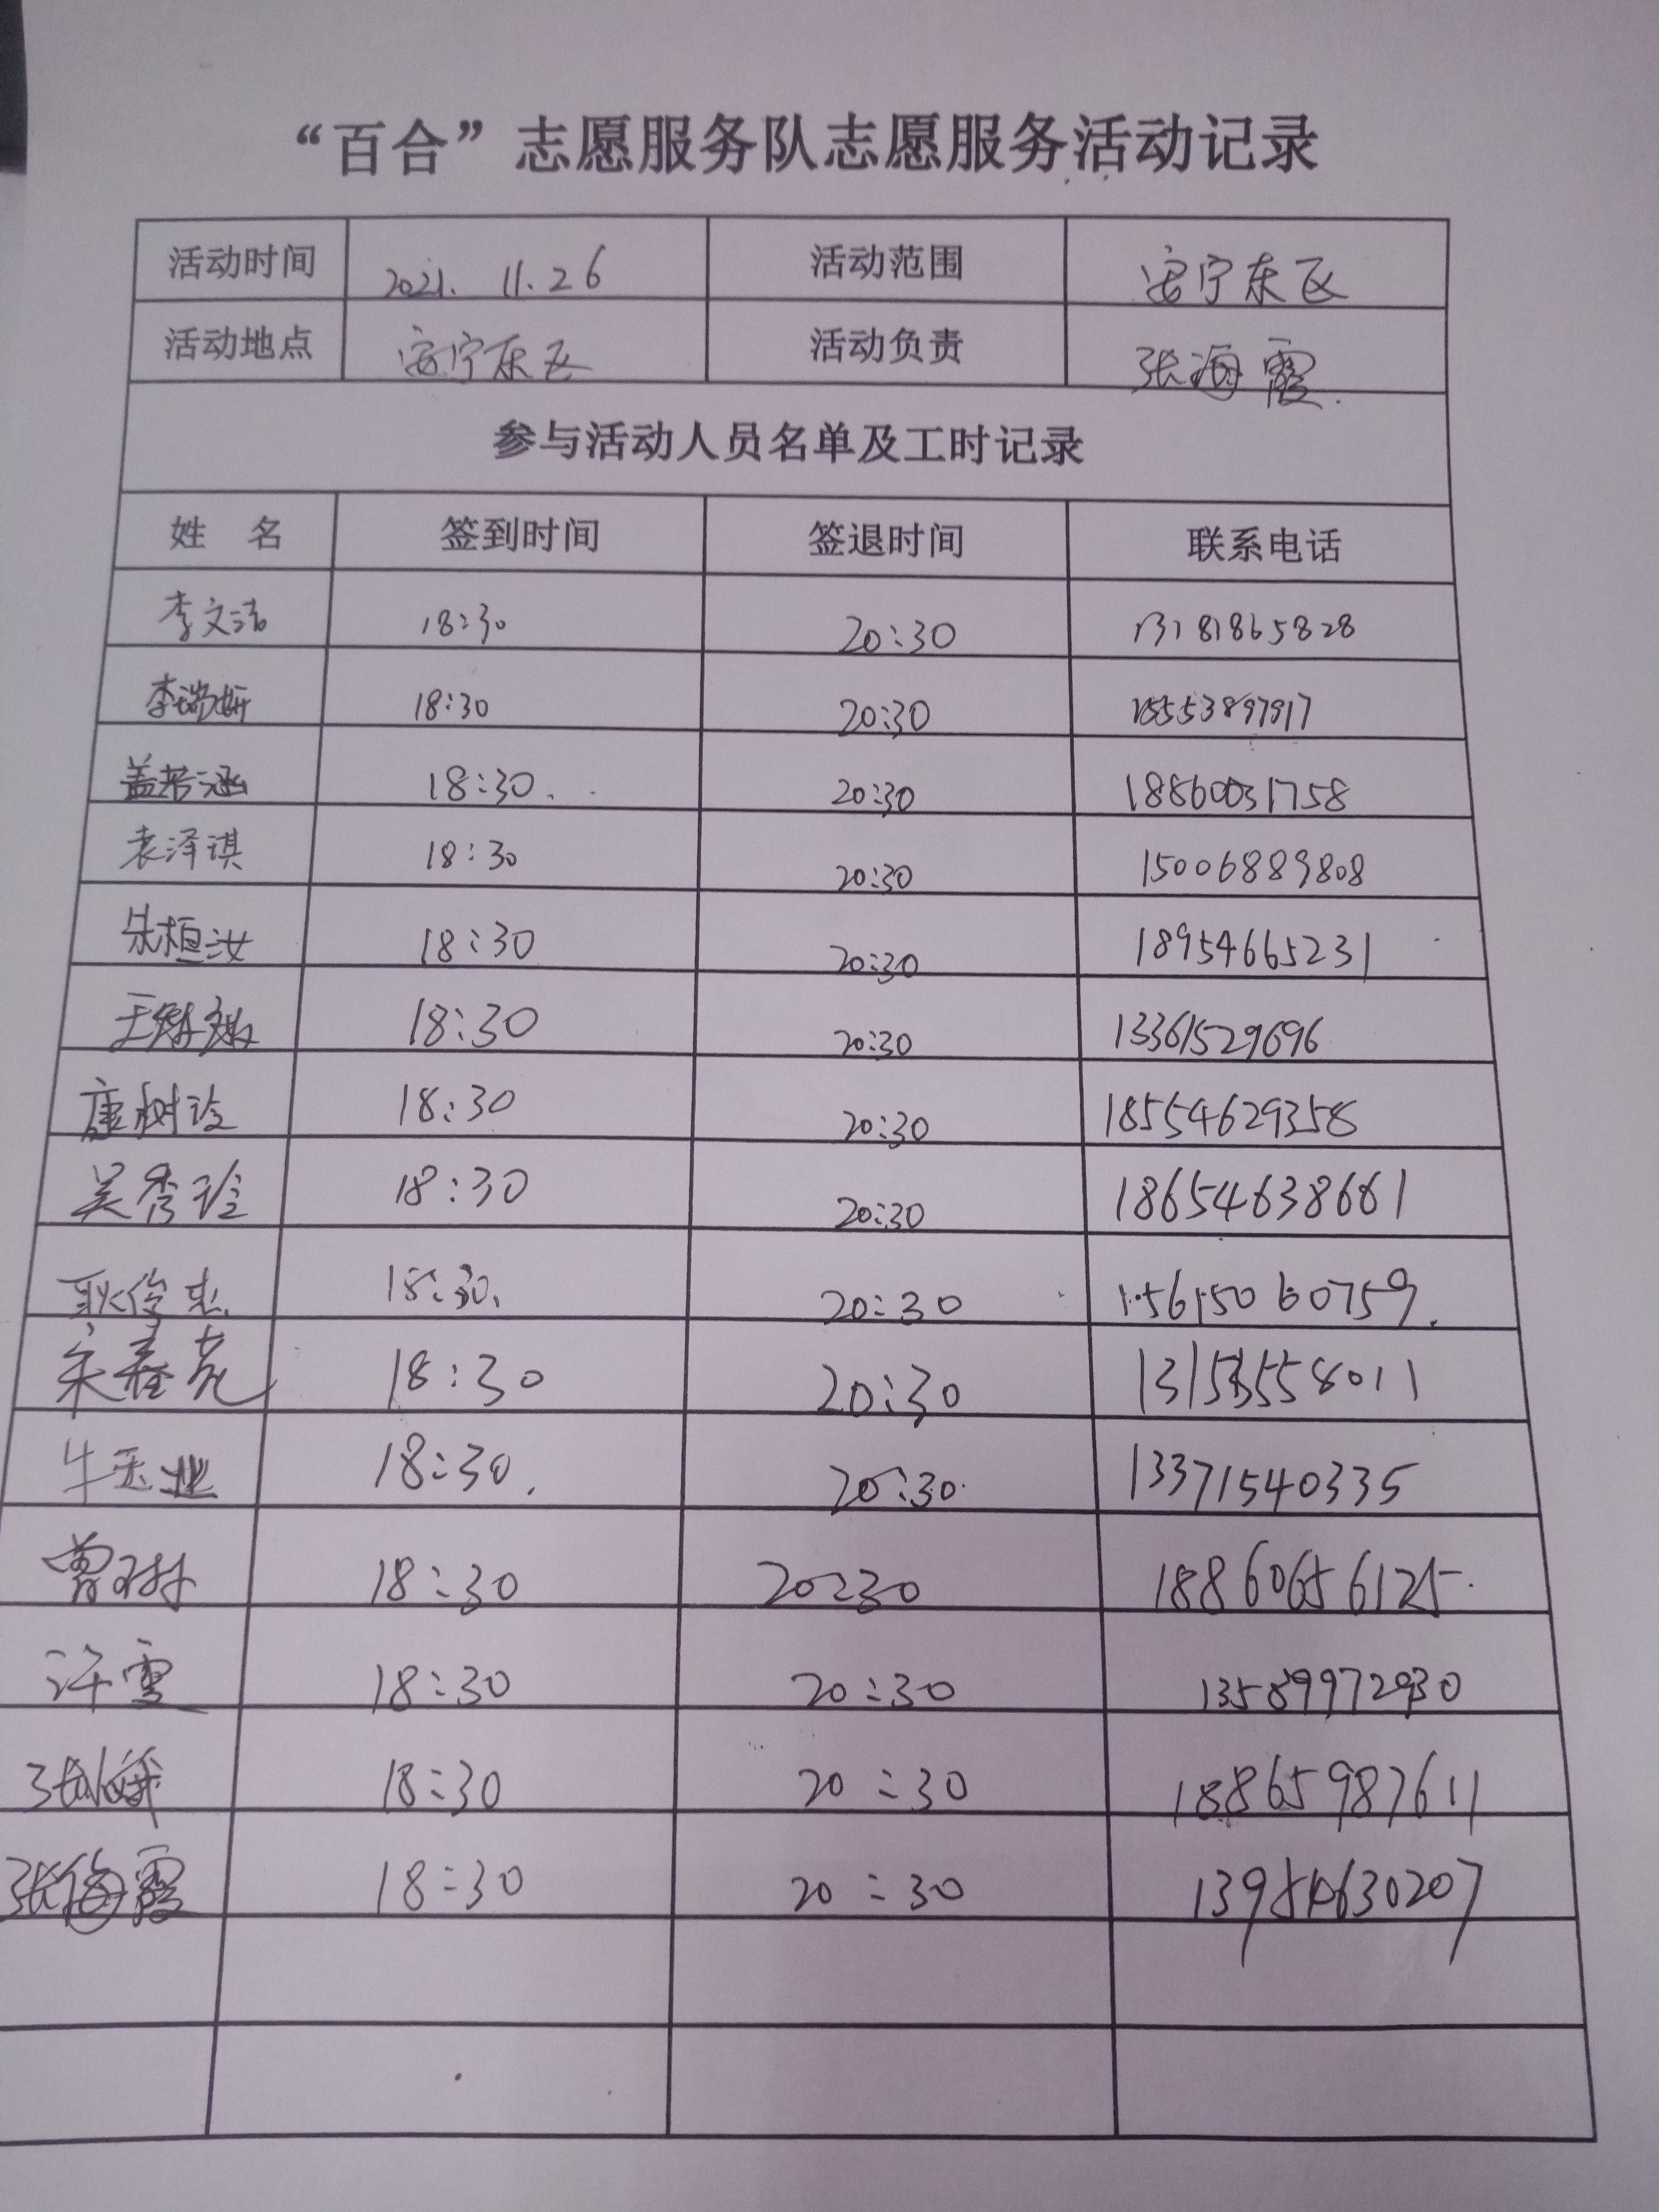 “百合”志愿服务队志愿服务活动记录
活动时间 2021. 11.26 活动范围 安宁东区
活动地点 安宁东区 活动负责 张海霞
参与活动人员名单及工时记录
姓 名 签到时间 签退时间 联系电话
李文洁 18:30 20:30 13181865828
李瑞妍 18:30 20:30 15553897917
盖若涵 18:30 20:30 18860031758
袁泽淇 18:30 20:30 15006889808
朱桓汝 18:30 20:30 18954665231
18:30 20:30 13361529696
康树玲 18:30 20:30 18554629358
吴秀玲 18:30 20:30 18654638661
耿俊杰 18:30 20:30 15615060759
宋春亮 18:30 20:30
牛玉业 18:30 20:30 13371540335
曾琳 18:30 20:30 18860656125
许雪 18:30 20:30 13589972930
18:30 20:30 18865987611
张海霞 18:30 20:30